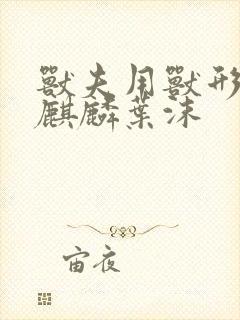 獸夫用獸形
麒麟葉沫
宙夜